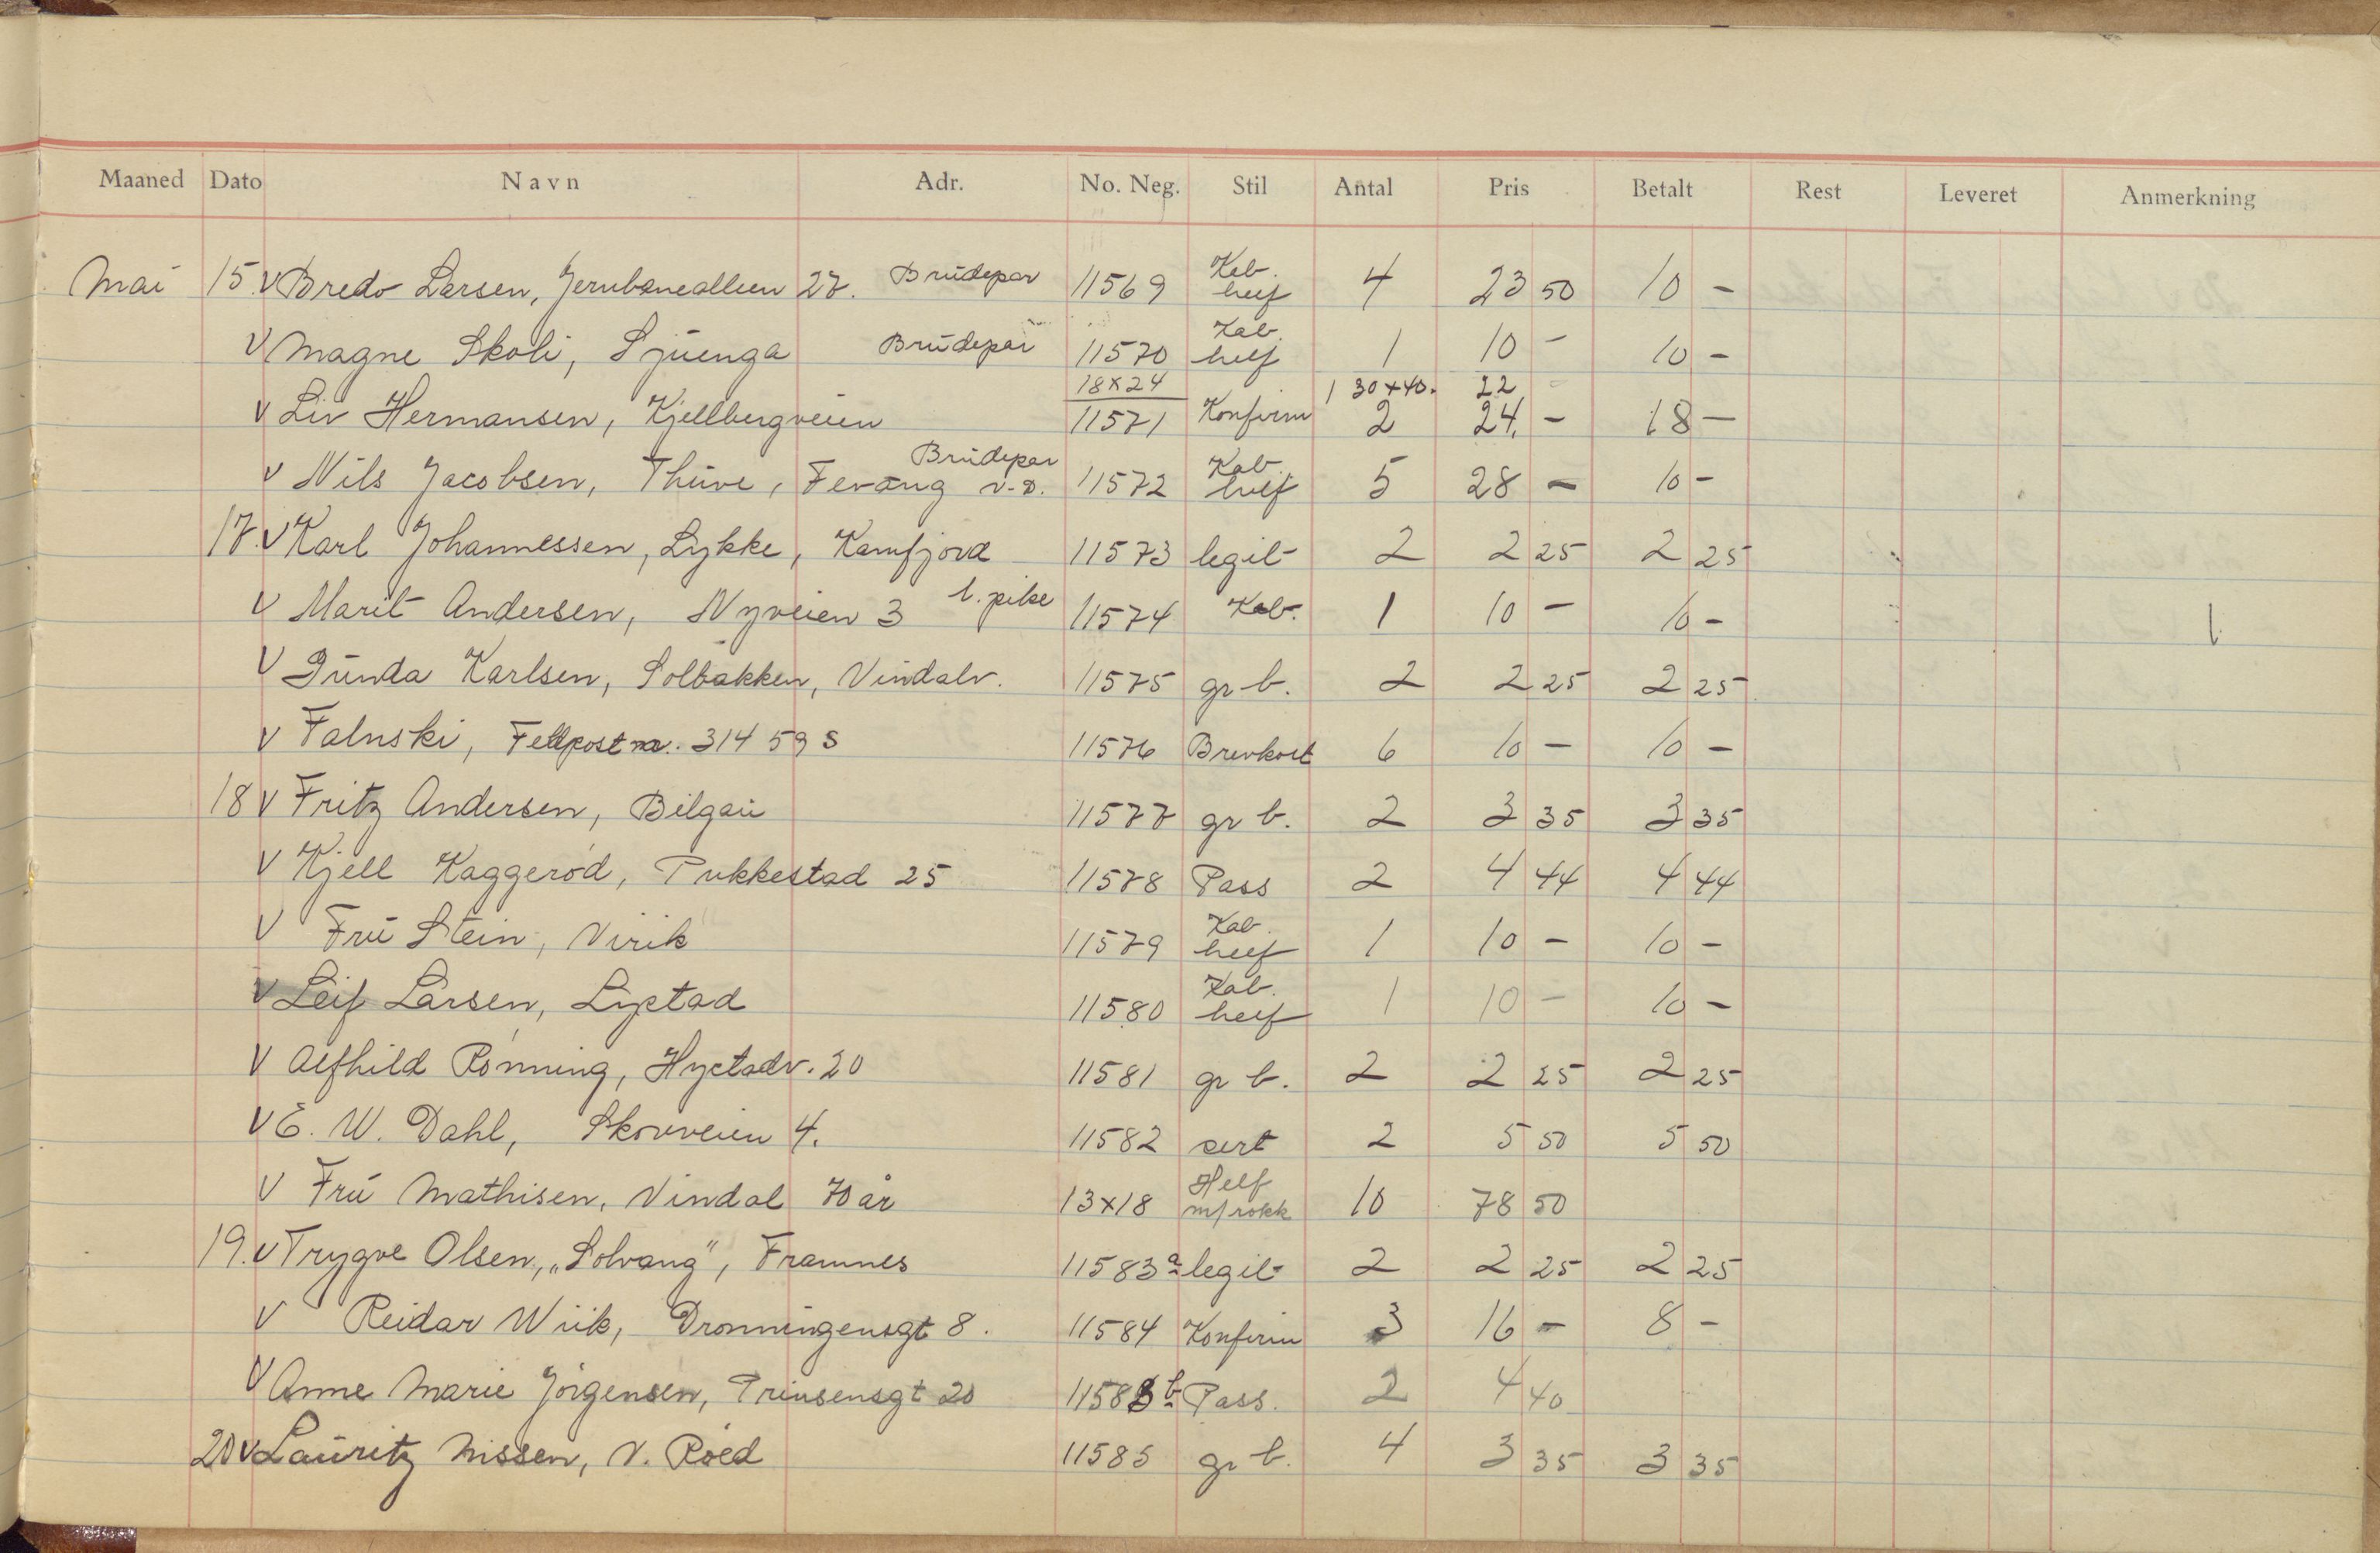 Maaned Dato Navn Adr. No. Neg. Stil Antal Pris Betalt Rest Leveret Anmerkning
Mai 15. V Bredo Larsen, Jernbanealleen 27. Brudepar 11569 Kab. helf 4 23 50 10 -
V Magne Skoli, Sjuenga Brudepar 11570 Kab. helf 1 10 - 10 -
18x24 1 30x40. 22 -
V Liv Hermansen, Kjellbergveien 11571 Konfirm 2 24. - 18 -
V Nils Jacobsen, Thuve, Fevang v.D. Brudepar 11572 Kab. helf 5 28 - 10 -
17. V Karl Johannessen, Lykke, Kamfjord 11573 legit 2 2 25 2 25
V Marit Andersen, Nyveien 3 l. pike 11574 Kab. 1 10 - 10 -
V Gunda Karlsen, Solbakken, Vindalv. 11575 gr b. 2 2 25 2 25
V Falnski, Feltpost nr. 314 59 S 11576 Brevkort 6 10 - 10 -
18 V Fritz Andersen, Bilgau 11577 gr b. 2 3 35 3 35
V Kjell Kaggerød, Pukkestad 25 11578 Pass 2 4 44 4 44
V Fru Stein, Virik 11579 Kab. helf 1 10 - 10 -
V Leif Larsen, Lystad 11580 Kab. helf 1 10 - 10 -
V Alfhild Rønning, Hystadv. 20 11581 gr b. 2 2 25 2 25
V E. W. Dahl, Skovveien 4. 11582 sert 2 5 50 5 50
V Fru Mathisen, Vindal 70 år 13x18 Helf m/rokk 10 78 50
19. V Trygve Olsen, „Solvang", Framnes 11583 a legit 2 2 25 2 25
V Reidar Wiik, Dronningensgt 8. 11584 Konfirm 3 16 - 8 -
V Anne Marie Jørgensen, Prinsensgt 20 11583 b Pass. 2 4 40
20 V Lauritz Nissen, V. Røed 11585 gr b. 4 3 35 3 35